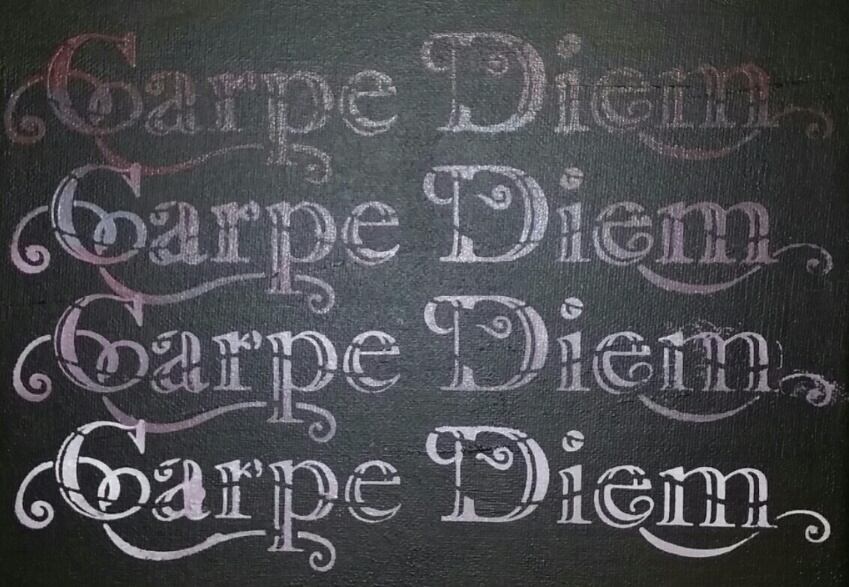 Carpe Diem
Carpe Diem
Carpe Diem
Carpe Diem